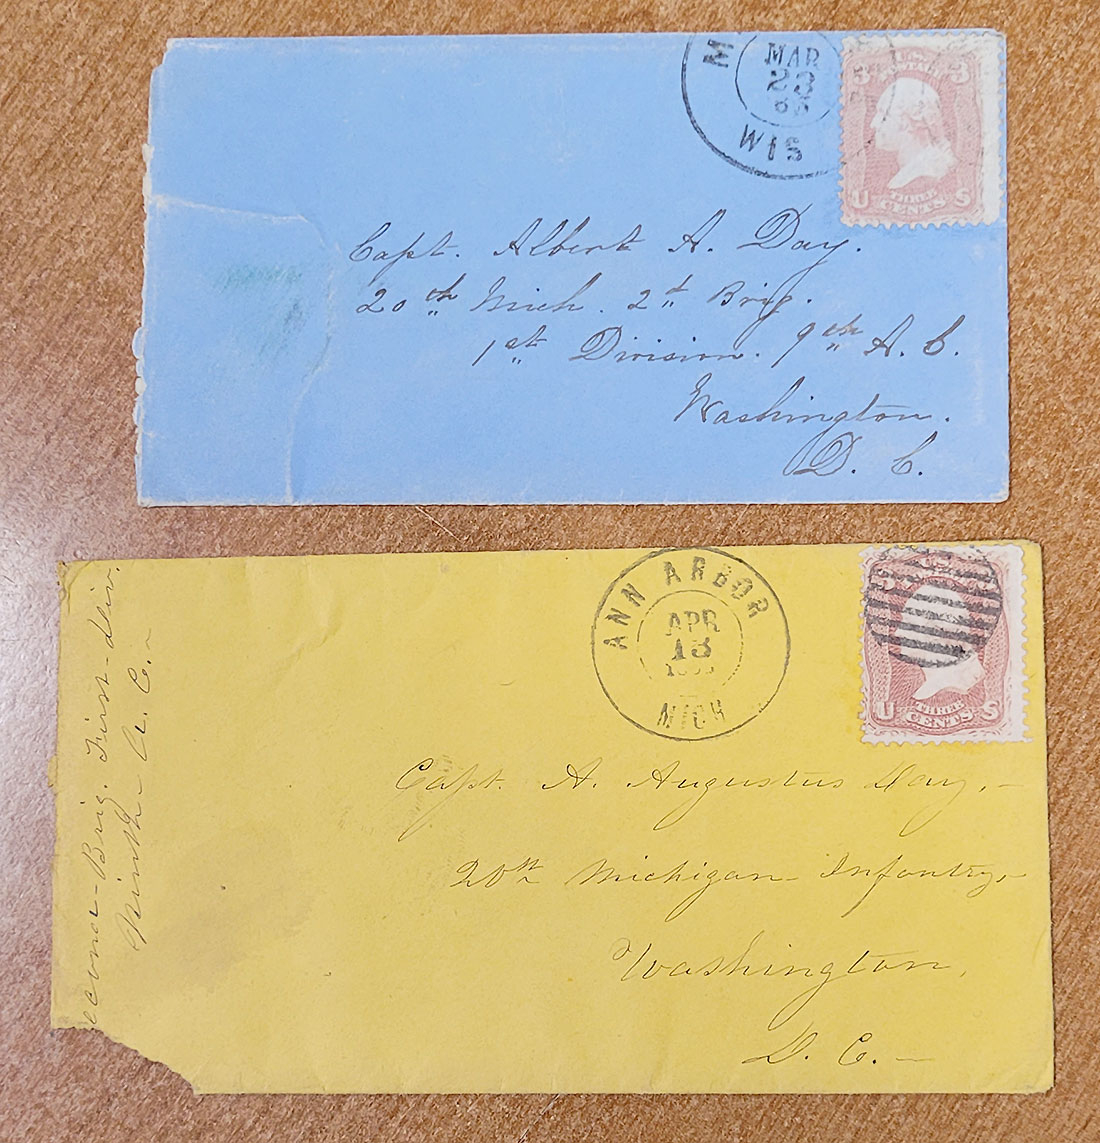 MAR
23
WIS
3 3
U THREE S
CENTS
Capt. Albert A. Day.
20th Mich. 2d Brig.
1st Division. 9th A. C.
Washington.
D. C.
ANN ARBOR
APR
13
MICH
U THREE S
CENTS
Capt. A. Augustus Day,–
20th Michigan Infantry,
Washington,
D. C.–
Brig. First Div.
Ninth A. C.–